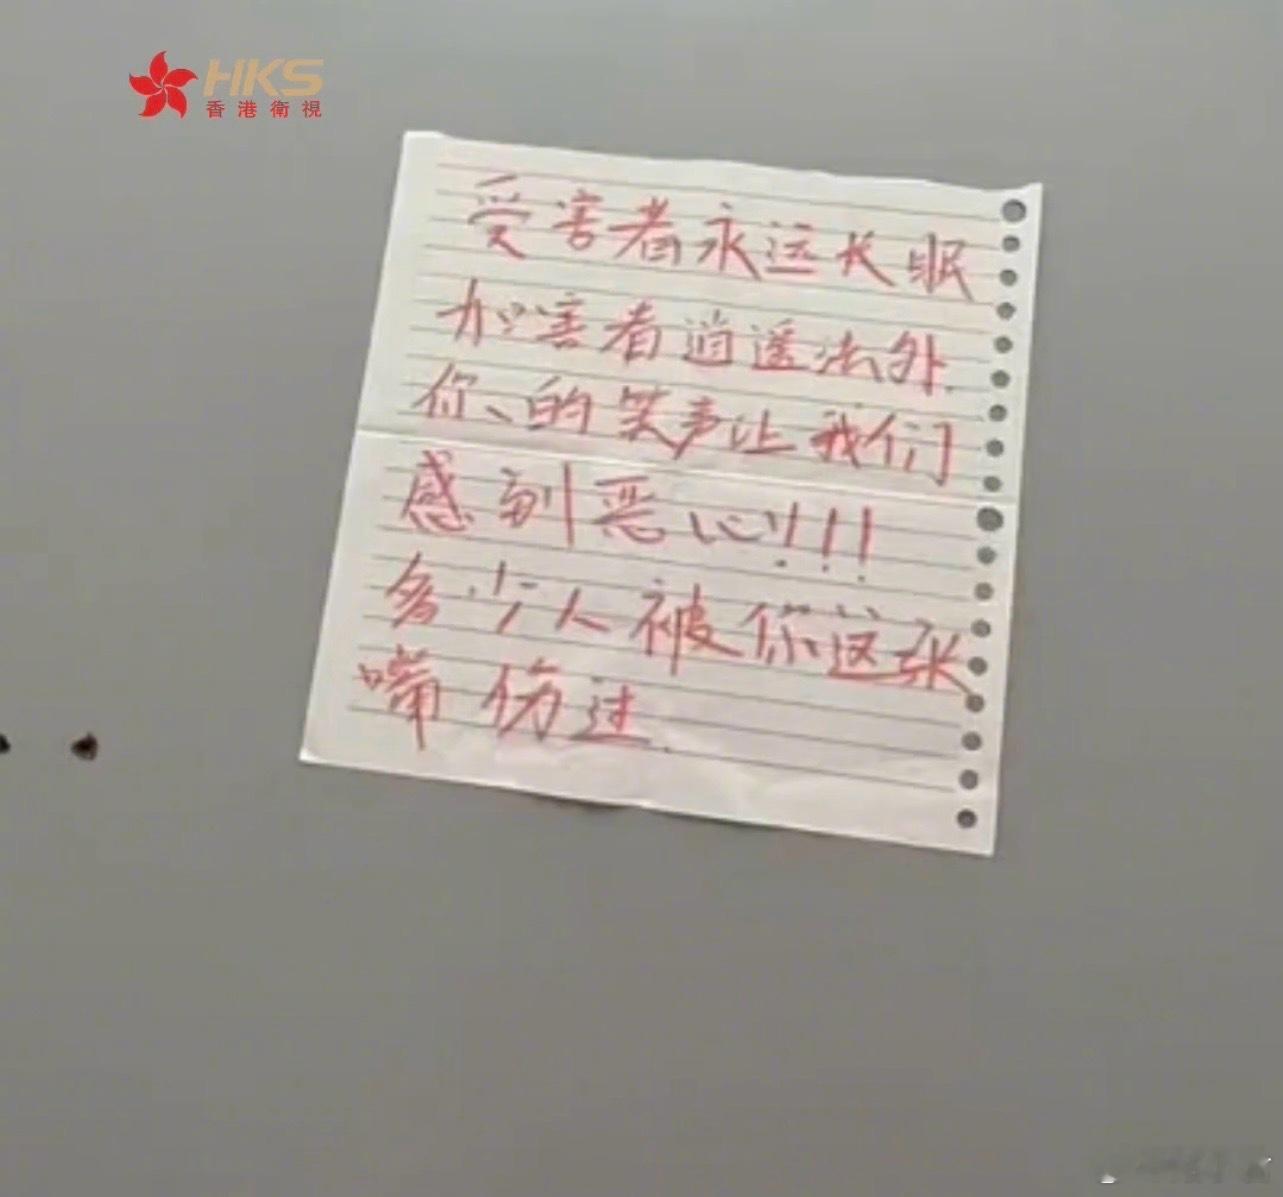 HKS
香港衛視
受害者永远长眠
加害者逍遥法外.
你、的笑声让我们
感到恶心!!!
多少人被你这张
嘴伤过.